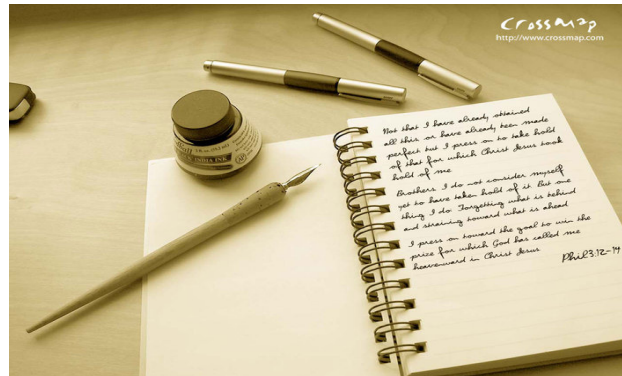 crossmap
http://www.crossmap.com
INDIA INK
Not that I have already obtained
all this or have already been made
perfect but I press on to take hold
of that for which Christ Jesus took
hold of me
Brothers I do not consider myself
yet to have taken hold of it But one
thing I do Forgetting what is behind
and straining toward what is ahead
I press on toward the goal to win the
prize for which God has called me
heavenward in Christ Jesus
Phil3:12-14